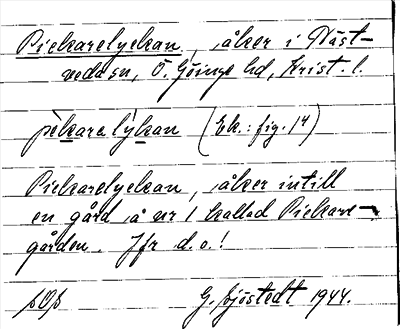 Pickarelyckan, åker i Näst-
veda sn, Ö. Göinge hd, Krist. l.
pèkaralỳkan (Ek.: fig. 14)
Pickarelyckan, åker intill
en gård å nr 1 kallad Pickare-
gården. Jfr d.o.!
G. Sjöstedt 1944.